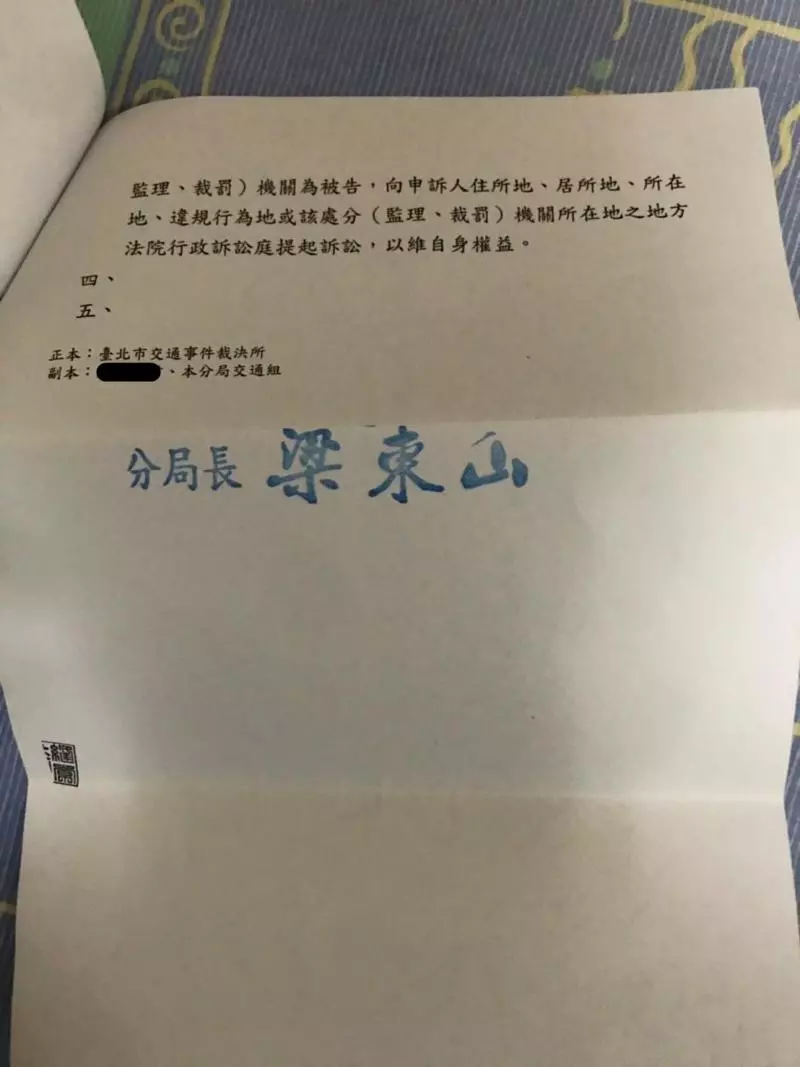 監理、裁罰）機關為被告，向申訴人住所地、居所地、所在
地、違規行為地或該處分（監理、裁罰）機關所在地之地方
法院行政訴訟庭提起訴訟，以維自身權益。
四、
五、
正本：臺北市交通事件裁決所
副本：、本分局交通組
分局長 梁東山